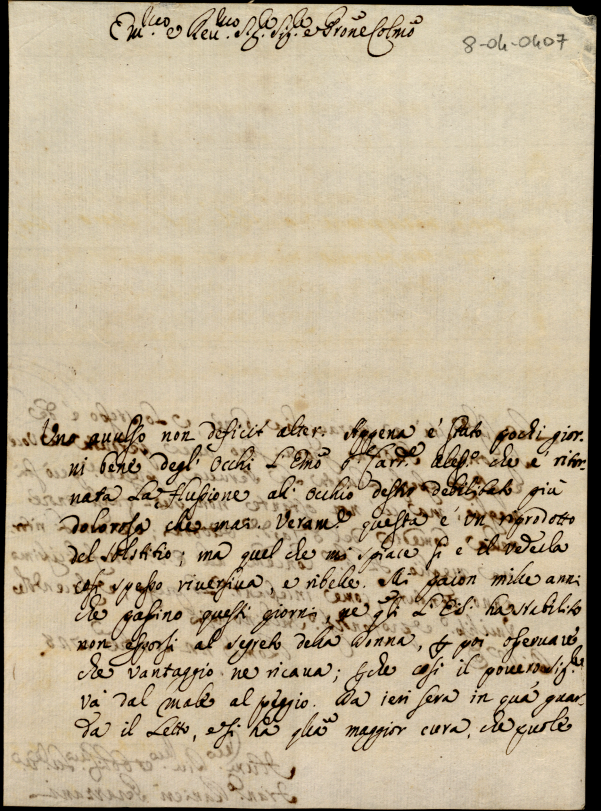 Em.mo e Rev.mo Sig.r Sig.r e Prone Colmo
8-04-0407
Uno avulso non deficit alter. Appena è stato pochi gior-
ni bene degl' occhi L'Emo Sr Card.l Aless.o che è ritor-
nata La flussione al' occhio destro debilitato più
dolorosa che mai. Veram.te questa è un riprodotto
del solstitio; ma quel che mi spiace si è il vederla
così spesso riversiva, e ribelle. Mi paion mille anni
che passino questi giorni, ne q.li L'Eis. ha stabilito
non esporsi al segreto della Donna, p poi osservare
che vantaggio ne ricava; pche così il povero Sig.re
và dal male al peggio. Da ieri sera in qua guar-
da il Letto, e si ha glià maggior cura, che puole